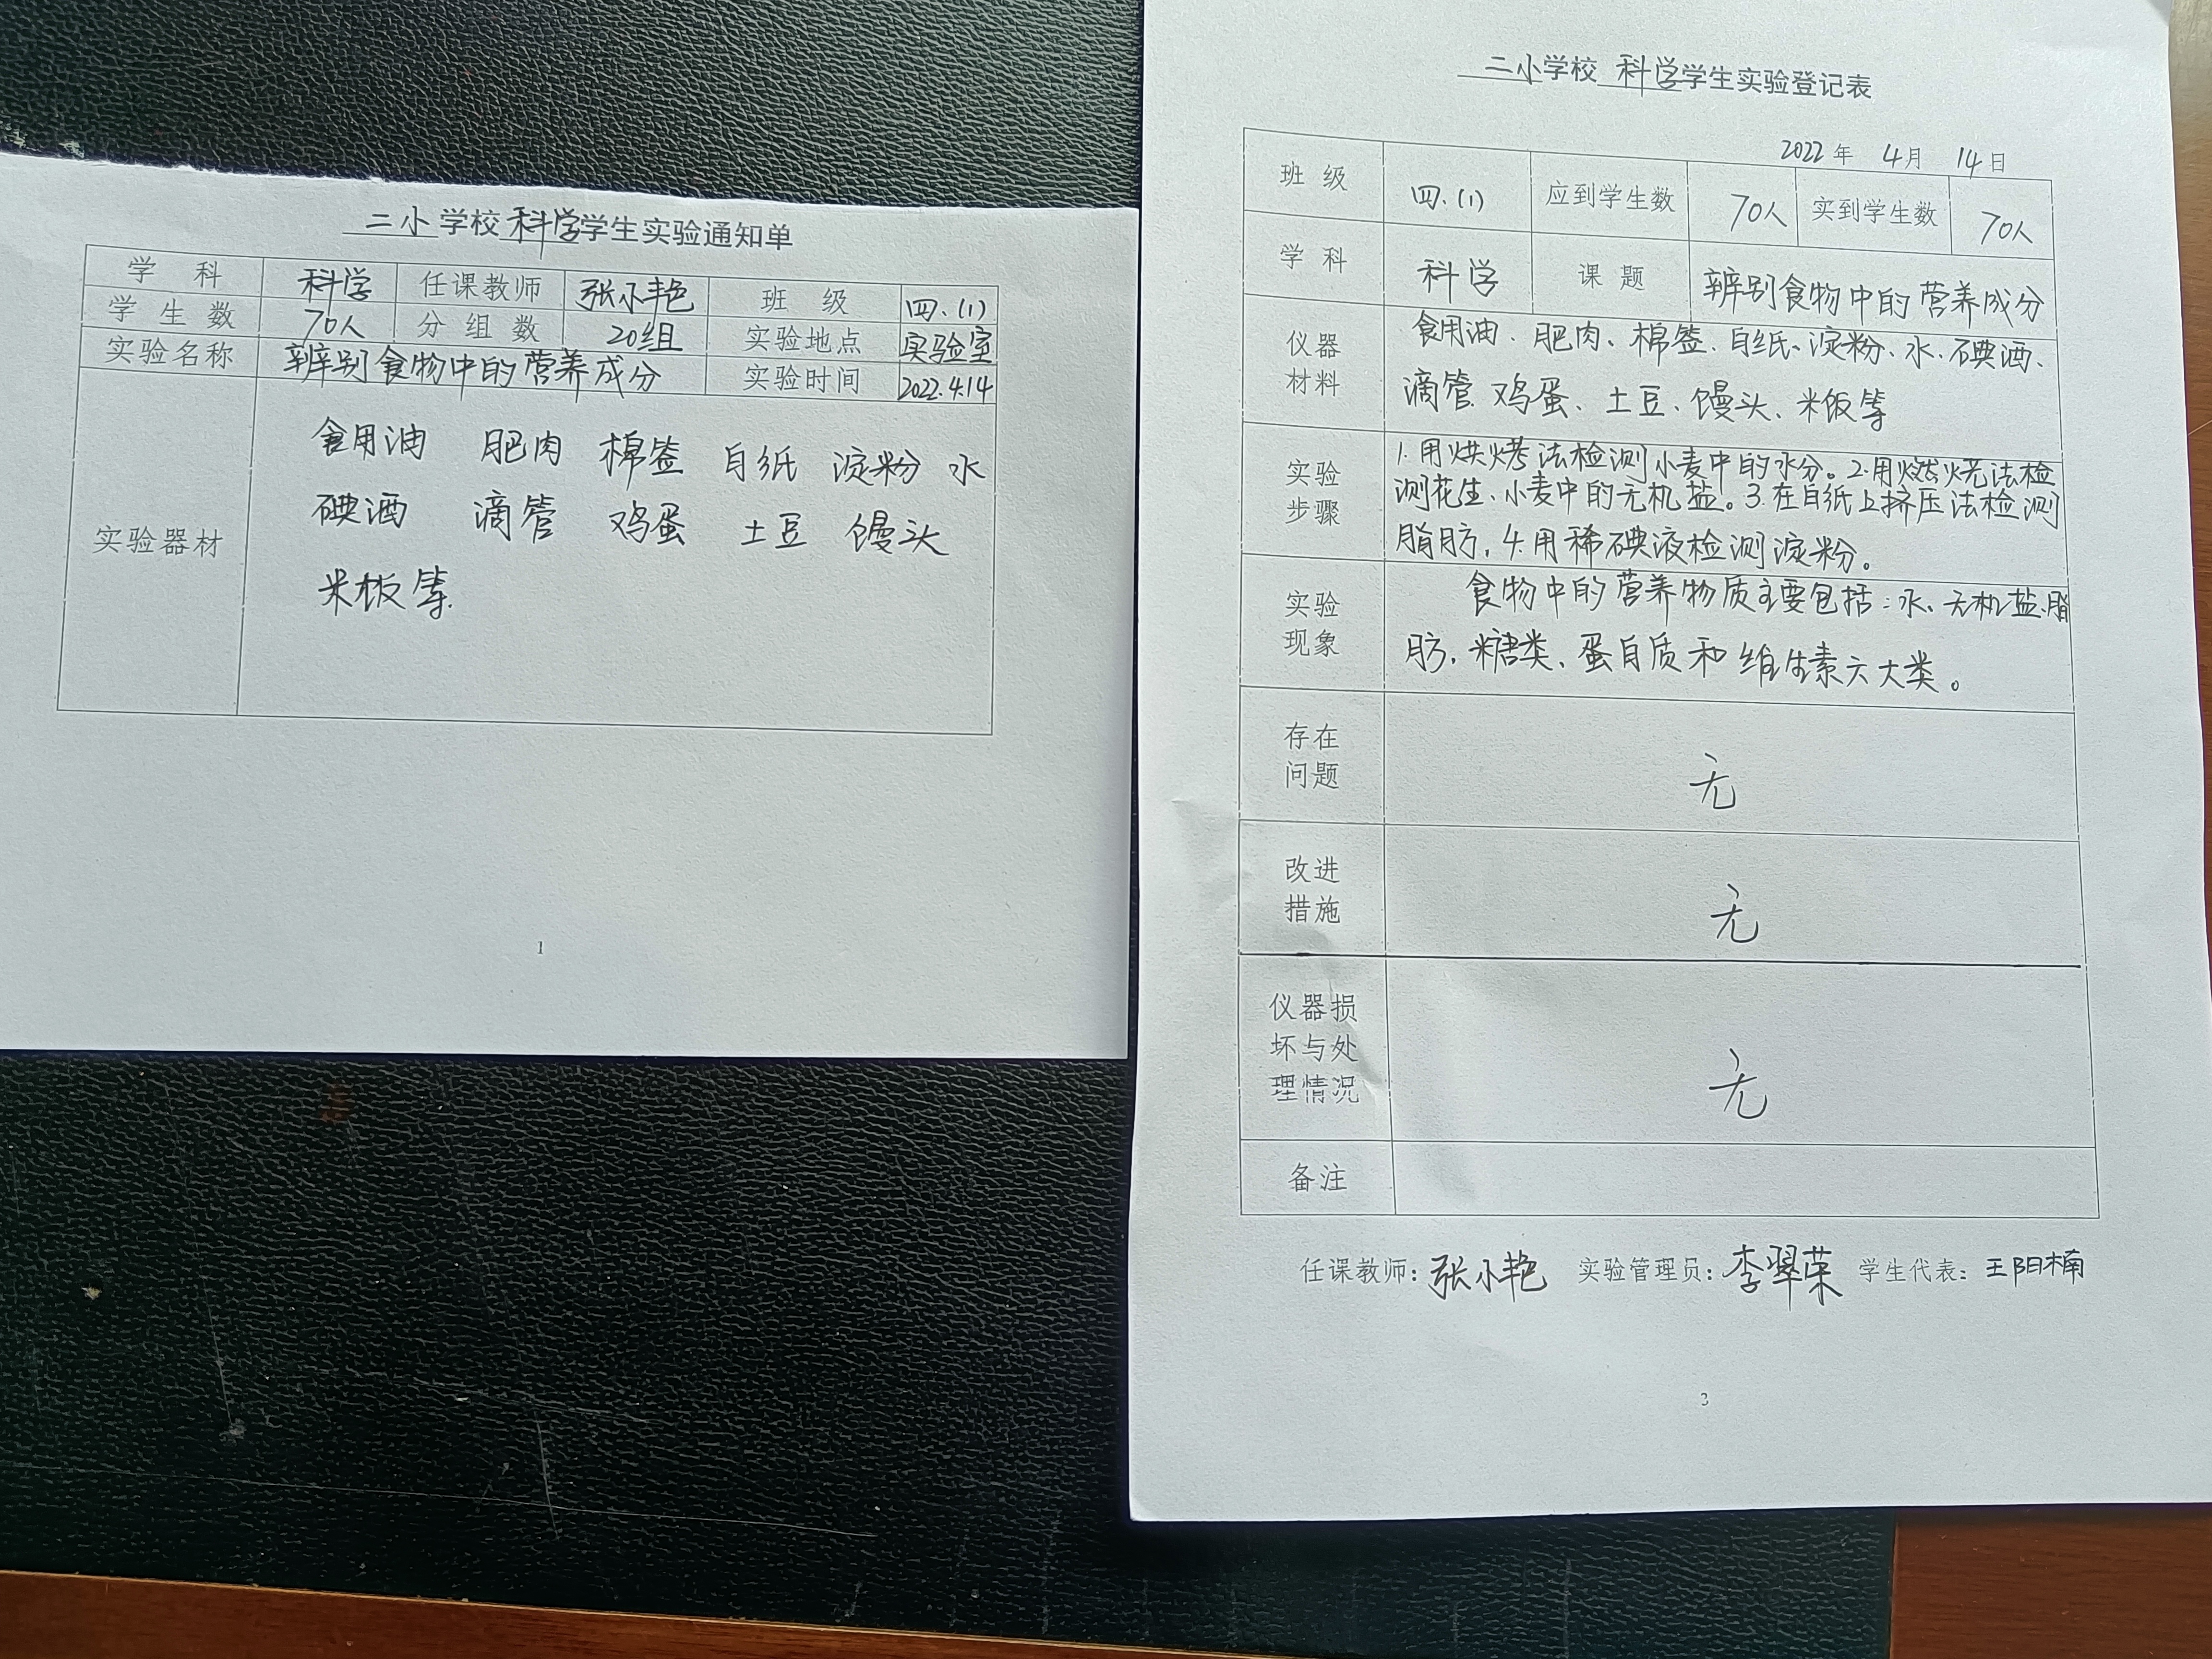 二小学校科学学生实验通知单
学科 科学 任课教师 张小艳 班级 四.(1)
学生数 70人 分组数 20组 实验地点 实验室
实验名称 辨别食物中的营养成分 实验时间 2022.4.14
实验器材
食用油 肥肉 棉签 白纸 淀粉 水
碘酒 滴管 鸡蛋 土豆 馒头
米板等.
1
二小学校科学学生实验登记表
2022年 4月 14日
班级 四.(1) 应到学生数 70人 实到学生数 70人
学科 科学 课题 辨别食物中的营养成分
仪器
材料
食用油、肥肉、棉签、白纸、淀粉、水、碘酒、
滴管 鸡蛋、土豆、馒头、米饭等
实验
步骤
1.用烘烤法检测小麦中的水分。2.用燃烧法检
测花生、小麦中的无机盐。3.在白纸上挤压法检测
脂肪,4.用稀碘液检测淀粉。
实验
现象
食物中的营养物质主要包括:水、无机盐、脂
肪,糖类、蛋白质和维生素六大类。
存在
问题
无
改进
措施
无
仪器损
坏与处
理情况
无
备注
任课教师:张小艳 实验管理员:李翠荣 学生代表:王阳楠
3